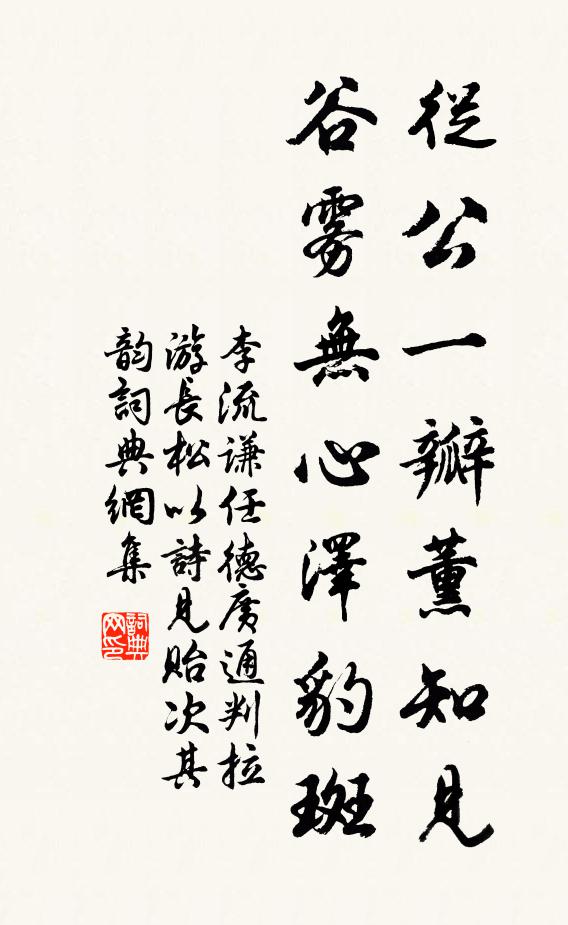 從公一瓣薰知見
谷雾無心澤豹斑
李流謙任德廣通判拉
游長松以詩見貽次其
韵詞典網集
詞典
网印